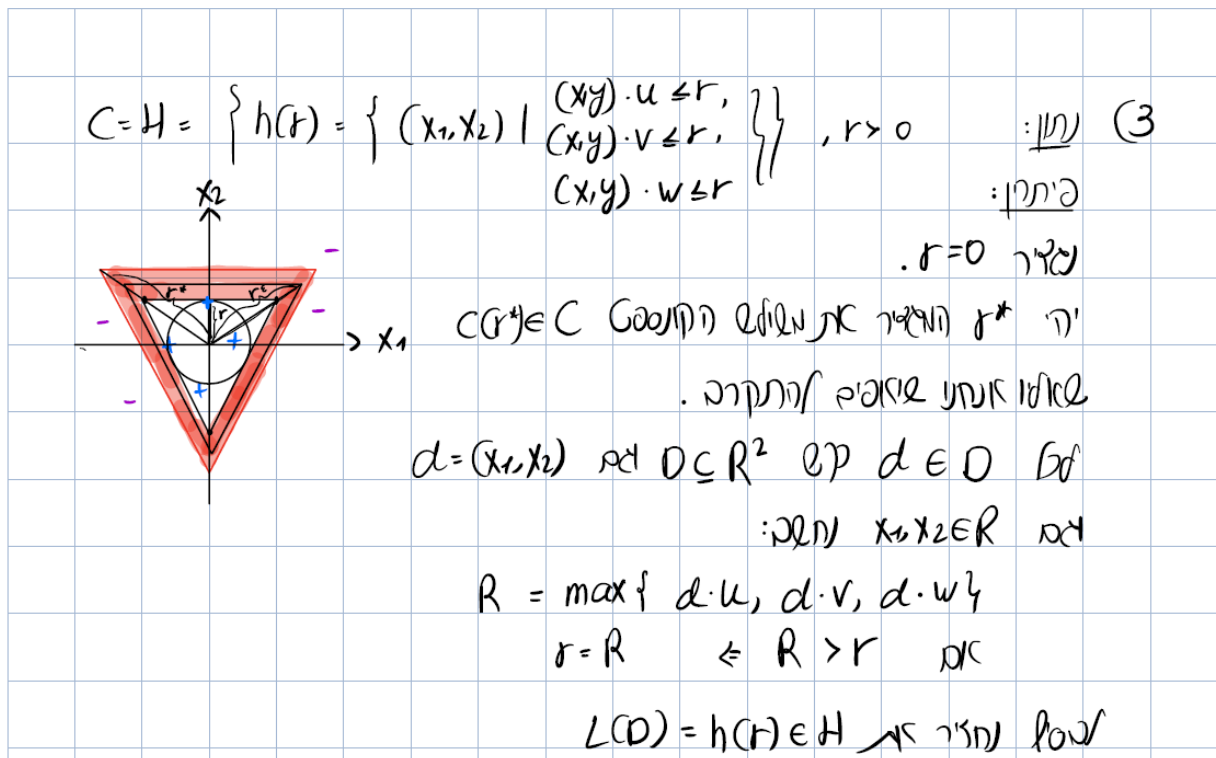 (3 נתון: C=H= { h(r) = { (x₁,x₂) | (x,y)·u ≤ r, (x,y)·v ≤ r, (x,y)·w ≤ r }} , r>0
פיתרון:
נגדיר r=0 .
יהי r* המגדיר את משולש הקונספט C(r*)∈C
שאליו אנחנו שואפים להתקרב .
לכל d∈D כך ש D⊆R² וגם d=(x₁,x₂)
וגם x₁,x₂∈R נחשב:
R = max{ d·u, d·v, d·w}
אם R>r ⇐ r=R
לבסוף נחזיר את L(D)=h(r)∈H
x₂
-
r* r*
+
r
- + + -
x₁
+
-